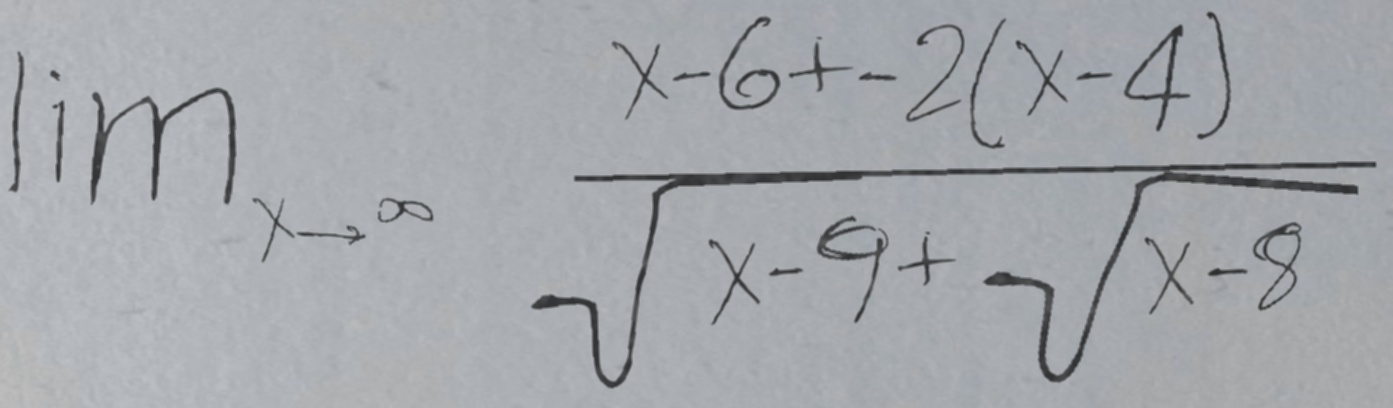 lim x→∞ \frac{x-6+-2(x-4)}{\sqrt{x-9+\sqrt{x-8}}}